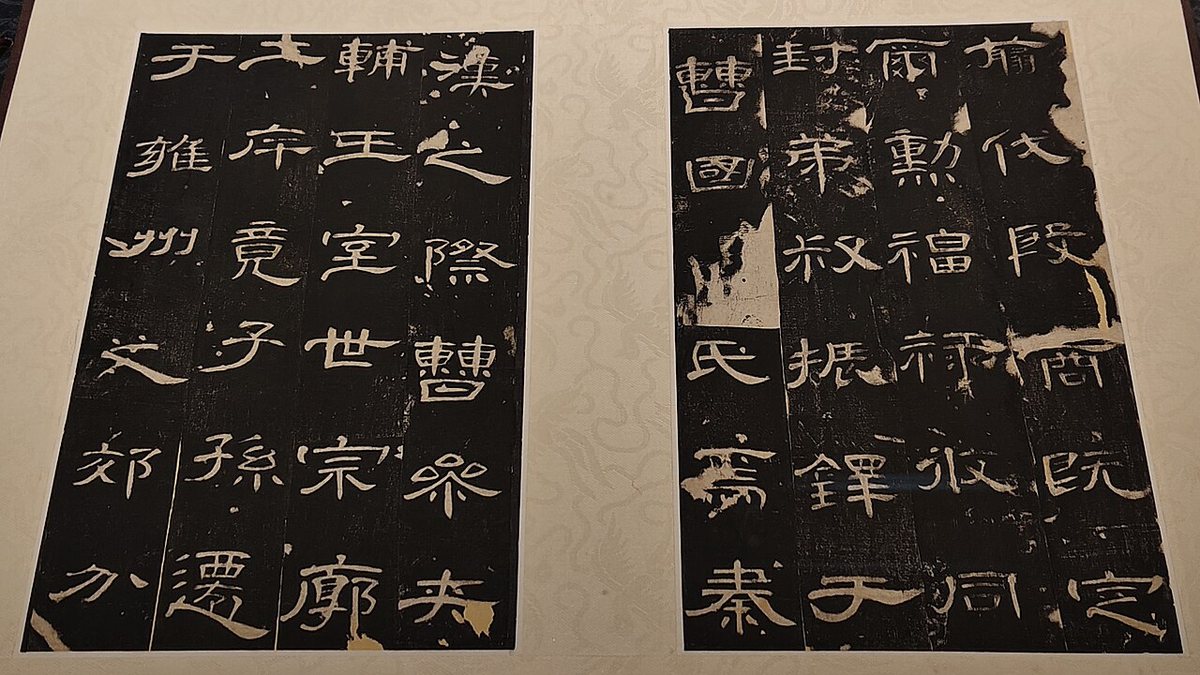 翦伐殷商既定
爾勳福祿攸同
封弟叔振鐸于
曹國氏焉秦
漢之際曹參夾
輔王室世宗廓
土斥竟子孫遷
于雍州之郊分